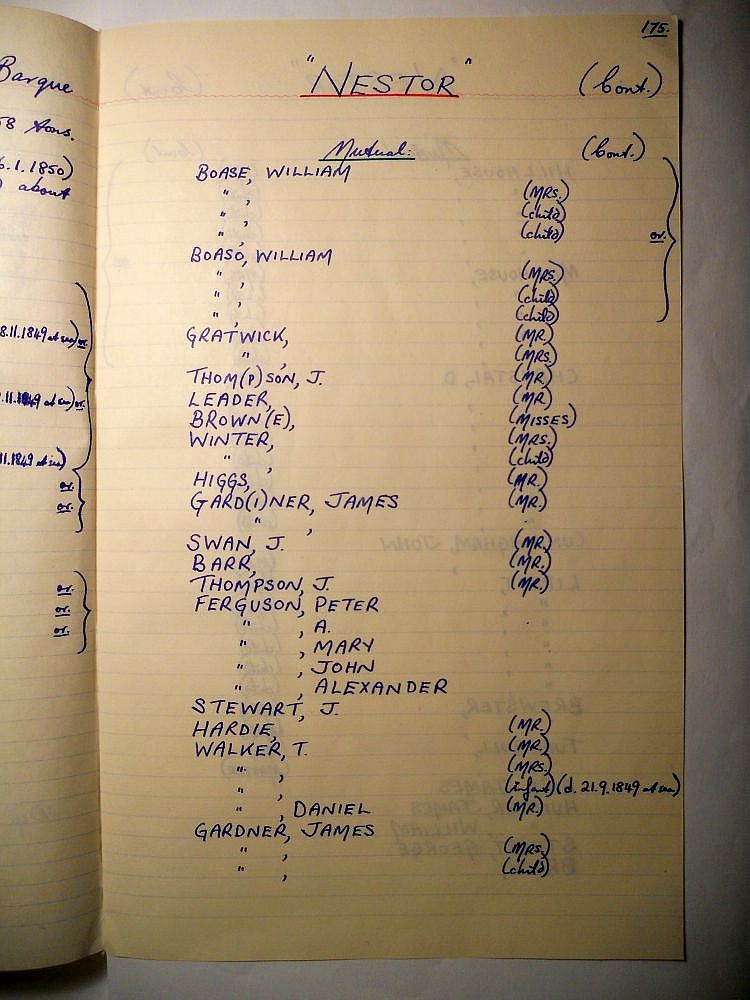 Barque
58 tons.
6.1.1850)
) about
8.11.1849 at sea) or.
.11.1849 at sea) or.
11.1849 at sea)
or.
or.
or.
or.
or.
175.
"NESTOR" (Cont.)
Mutual: (Cont.)
BOASE, WILLIAM
" , (MRS.)
" , (child)
" , (child) or.
BOASO, WILLIAM
" , (MRS.)
" , (child)
" , (child)
GRATWICK, (MR.)
" , (MRS.)
THOM(P)SON, J. (MR.)
LEADER, (MR.)
BROWN(E), (MISSES)
WINTER, (MRS.)
" , (child)
HIGGS, (MR.)
GARD(I)NER, JAMES (MR.)
" ,
SWAN, J. (MR.)
BARR, (MR.)
THOMPSON, J. (MR.)
FERGUSON, PETER
" , A.
" , MARY
" , JOHN
" , ALEXANDER
STEWART, J.
HARDIE, (MR.)
WALKER, T. (MR.)
" , (MRS.)
" , (infant) (d. 21.9.1849 at sea)
" , DANIEL (MR.)
GARDNER, JAMES
" , (MRS.)
" , (child)